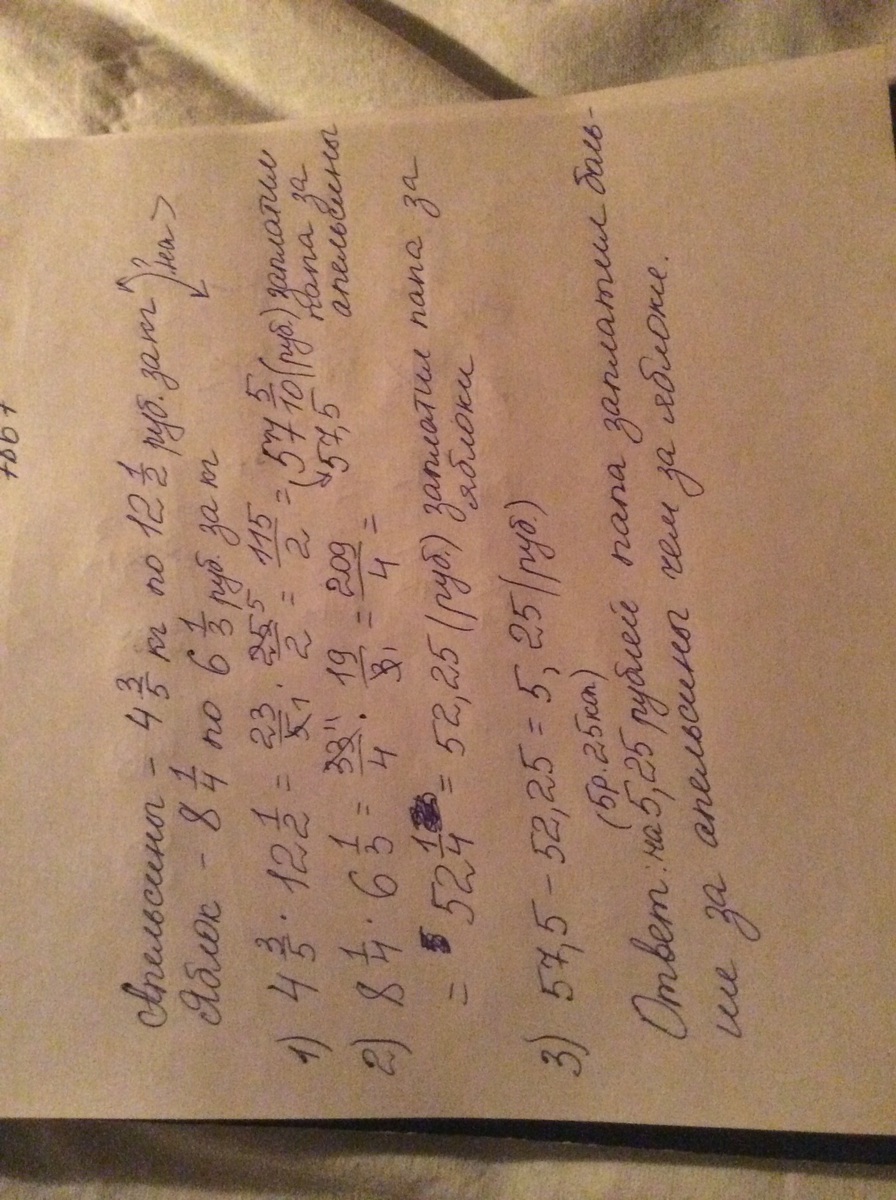 Апельсины - 4 3/5 кг по 12 1/2 руб. за кг
Яблок - 8 1/4 по 6 1/3 руб. за кг
? на >
1) 4 3/5 · 12 1/2 = 23/5 1 · 25 5/2 = 115/2 = 57 5/10 (руб.) заплатил
57,5 папа за
апельсины
2) 8 1/4 · 6 1/3 = 33 11/4 · 19/3 1 = 209/4 =
= 52 1/4 = 52,25 (руб.) заплатил папа за
яблоки
3) 57,5 - 52,25 = 5,25 (руб.)
(5р. 25коп)
Ответ: на 5,25 рублей папа заплатил боль-
ше за апельсины чем за яблоки.